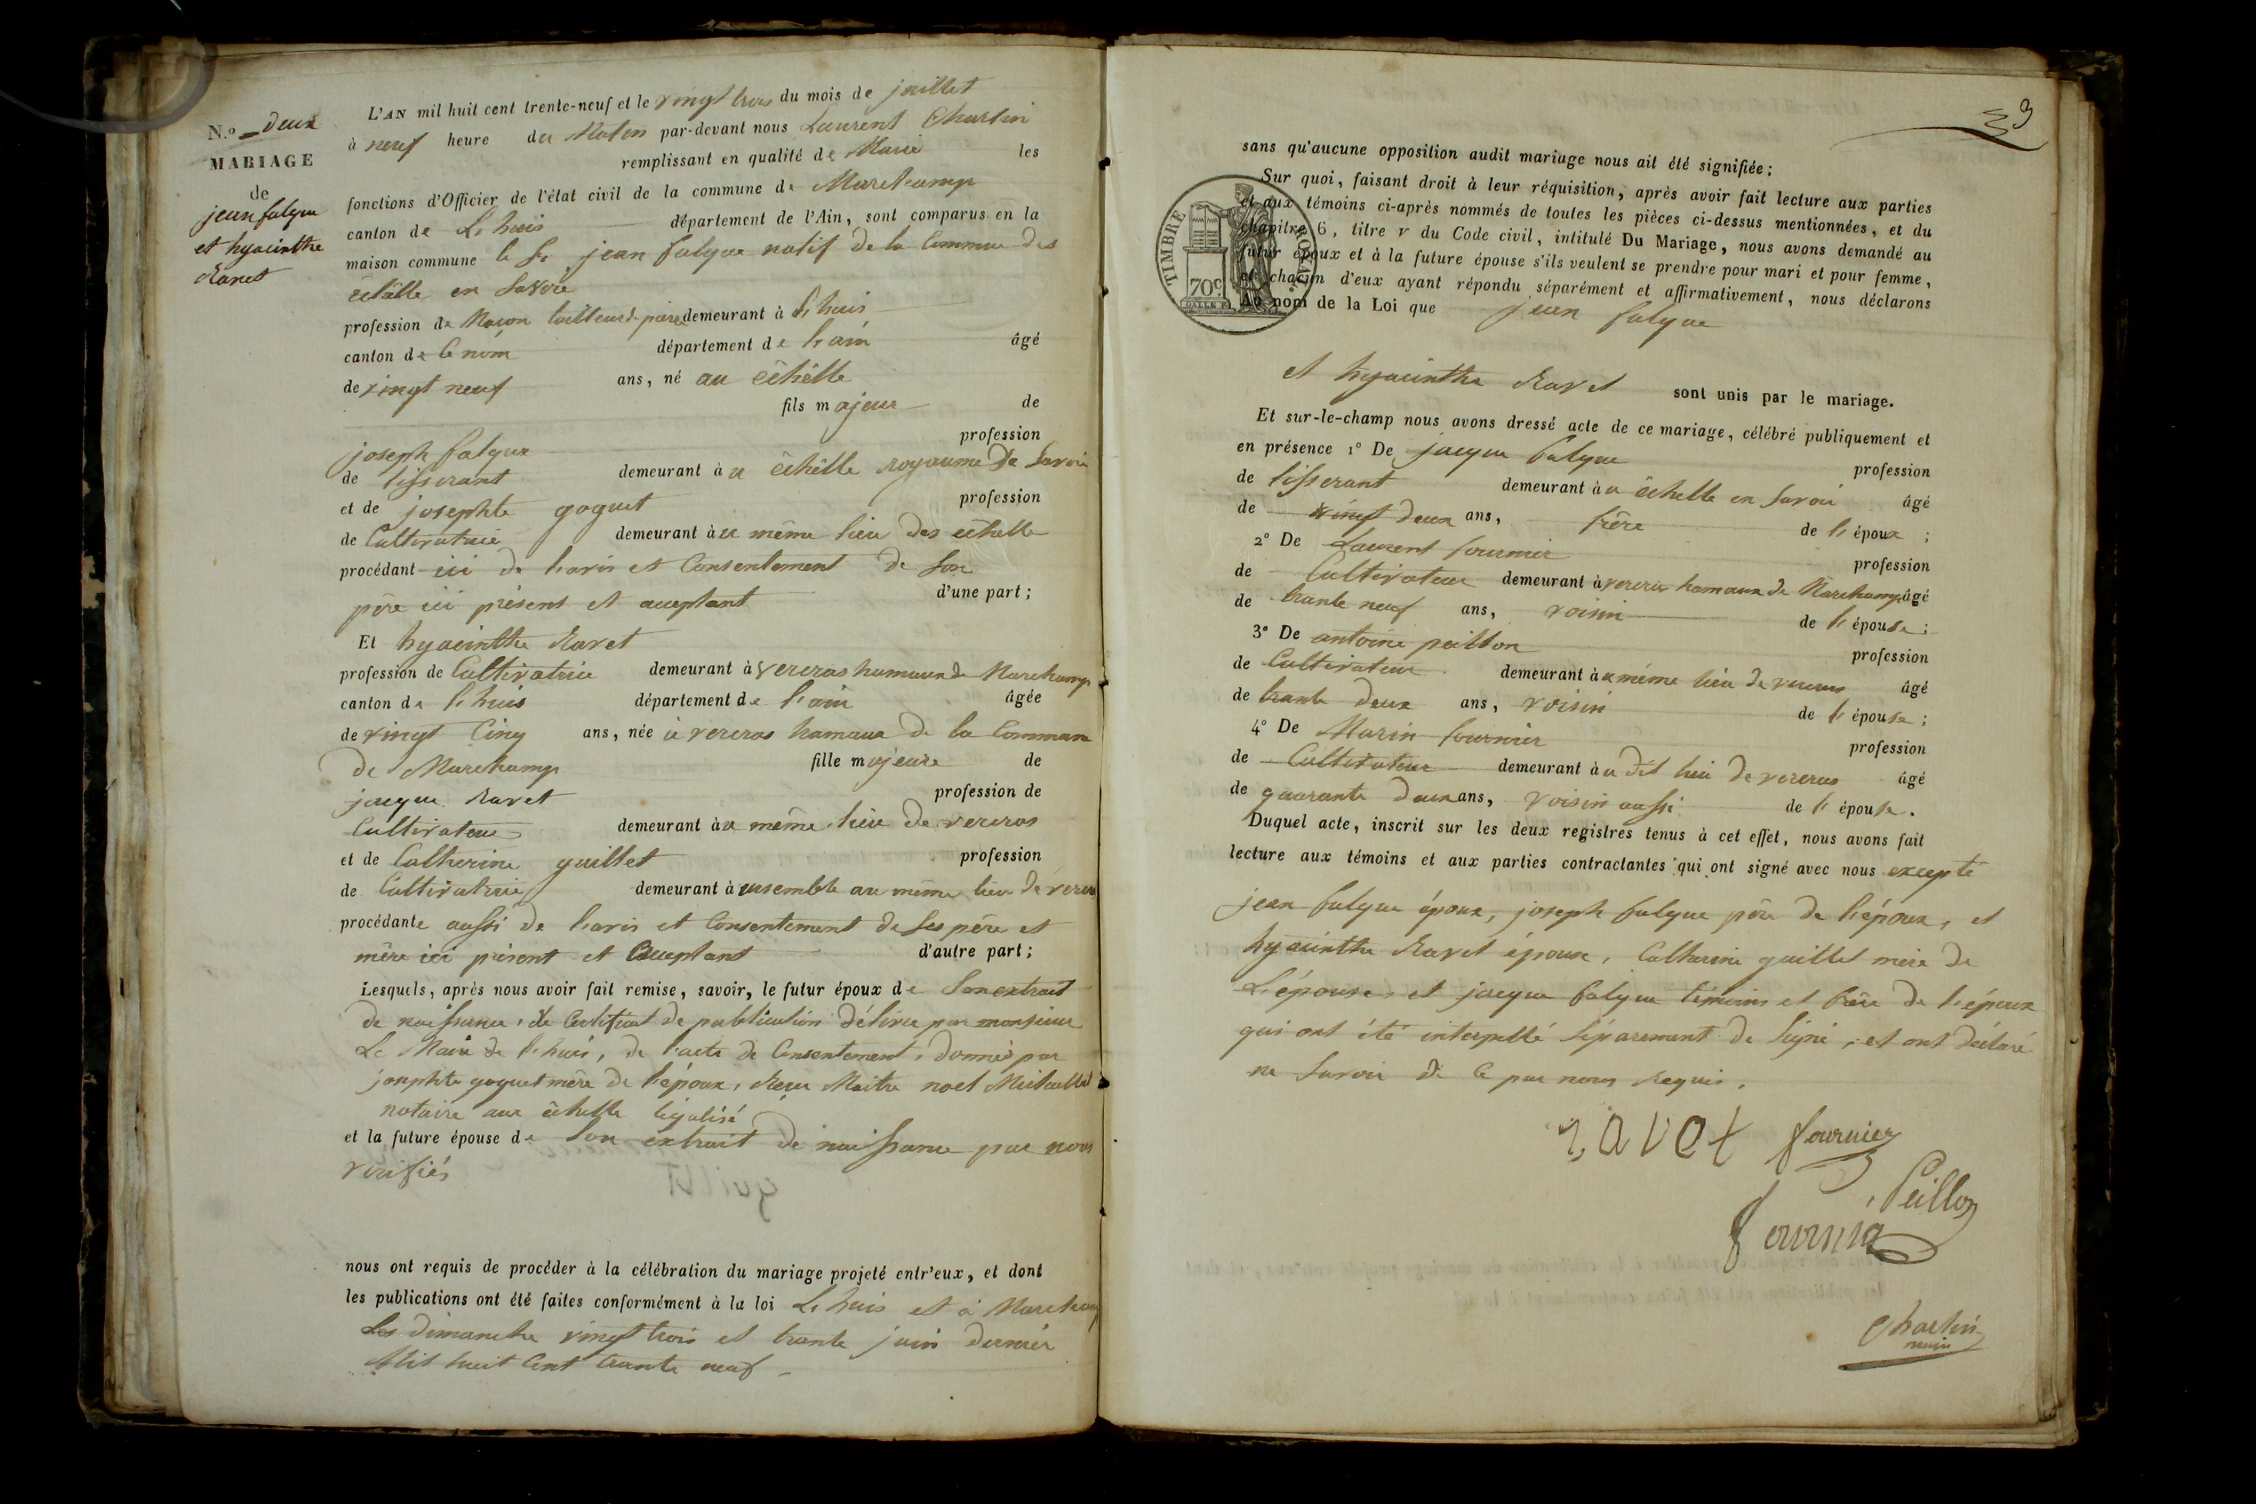 N.o deux
MARIAGE
de
jean falque
et hyacinthe
Ravet
L'AN mil huit cent trente-neuf et le vingt trois du mois de juillet
à neuf heure du Matin par-devant nous Laurent Charlin
remplissant en qualité de Maire les
fonctions d'Officier de l'état civil de la commune de Marchamp
canton de L'huis département de l'Ain, sont comparus en la
maison commune le Sr jean falque natif de la Commune des
échelle en Savoie
profession de Maçon tailleur de pierre demeurant à L'huis
canton de ce nom département de l'ain âgé
de vingt neuf ans, né au échelle
fils majeur de
joseph falque profession
de tisserant demeurant à u échelle royaume De Savoie
et de josephte goguet profession
de Cultivatrice demeurant à u même lieu des echelle
procédant ici de l'avis et Consentement de Son
père ici présent et acceptant d'une part;
Et hyacinthe Ravet
profession de Cultivatrice demeurant à vercras hamaux de Marchamp
canton de l'huis département de l'ain âgée
de vingt Cinq ans, née à vercras hamaux de la Commune
de Marchamp fille majeure de
jacque Ravet profession de
Cultivateur demeurant à u même lieu de vercras
et de Catherine guillet profession
de Cultivatrice demeurant à ensemble au même lieu de vercras
procédante aussi de l'avis et Consentement de Ses père et
mère ici présent et acceptant d'autre part;
Lesquels, après nous avoir fait remise, savoir, le futur époux de Son extrait
de naissance, de Certificat de publication délivré par monsieur
Le Maire de l'huis, de l'acte de Consentement, donnés par
josephte goguet mère de l'époux, Reçu Maitre noel
notaire aux échelle légalisé
et la future épouse de Son extrait de naissance par nous
vérifiés
nous ont requis de procéder à la célébration du mariage projeté entr'eux, et dont
les publications ont été faites conformément à la loi L'huis et à Marchamp
Les dimanche vingt trois et trante juin dernier
Mil huit Cent trante neuf
3
sans qu'aucune opposition audit mariage nous ait été signifiée;
Sur quoi, faisant droit à leur réquisition, après avoir fait lecture aux parties
et aux témoins ci-après nommés de toutes les pièces ci-dessus mentionnées, et du
chapitre 6, titre v du Code civil, intitulé Du Mariage, nous avons demandé au
futur époux et à la future épouse s'ils veulent se prendre pour mari et pour femme,
et chacun d'eux ayant répondu séparément et affirmativement, nous déclarons
Au nom de la Loi que jean falque
TIMBRE ROYAL
70c
et hyacinthe Ravet sont unis par le mariage.
Et sur-le-champ nous avons dressé acte de ce mariage, célébré publiquement et
en présence 1° De jacque falque profession
de tisserant demeurant à u échelle en Savoie âgé
de vingt deux ans, frère de l'époux;
2° De Laurent fournier profession
de Cultivateur demeurant à vercras hamaux de Marchamp âgé
de trante neuf ans, voisin de l'épouse;
3° De antoine peillon profession
de Cultivateur demeurant à u même lieu de vercras âgé
de trante deux ans, voisin de l'épouse;
4° De Marin fournier profession
de Cultivateur demeurant à u dit lieu de vercras âgé
de quarante deux ans, voisin aussi de l'épouse.
Duquel acte, inscrit sur les deux registres tenus à cet effet, nous avons fait
lecture aux témoins et aux parties contractantes qui ont signé avec nous excepté
jean falque époux, joseph falque père de l'époux, et
hyacinthe Ravet épouse, Catharine guillet mère de
L'épouse, et jacque falque témoins et frère de l'époux
qui ont été interpellé séparement de Signé, et ont déclaré
ne Savoir de ce par nous Requis.
ravet fournier
Peillon
fournier
Charlin
maire